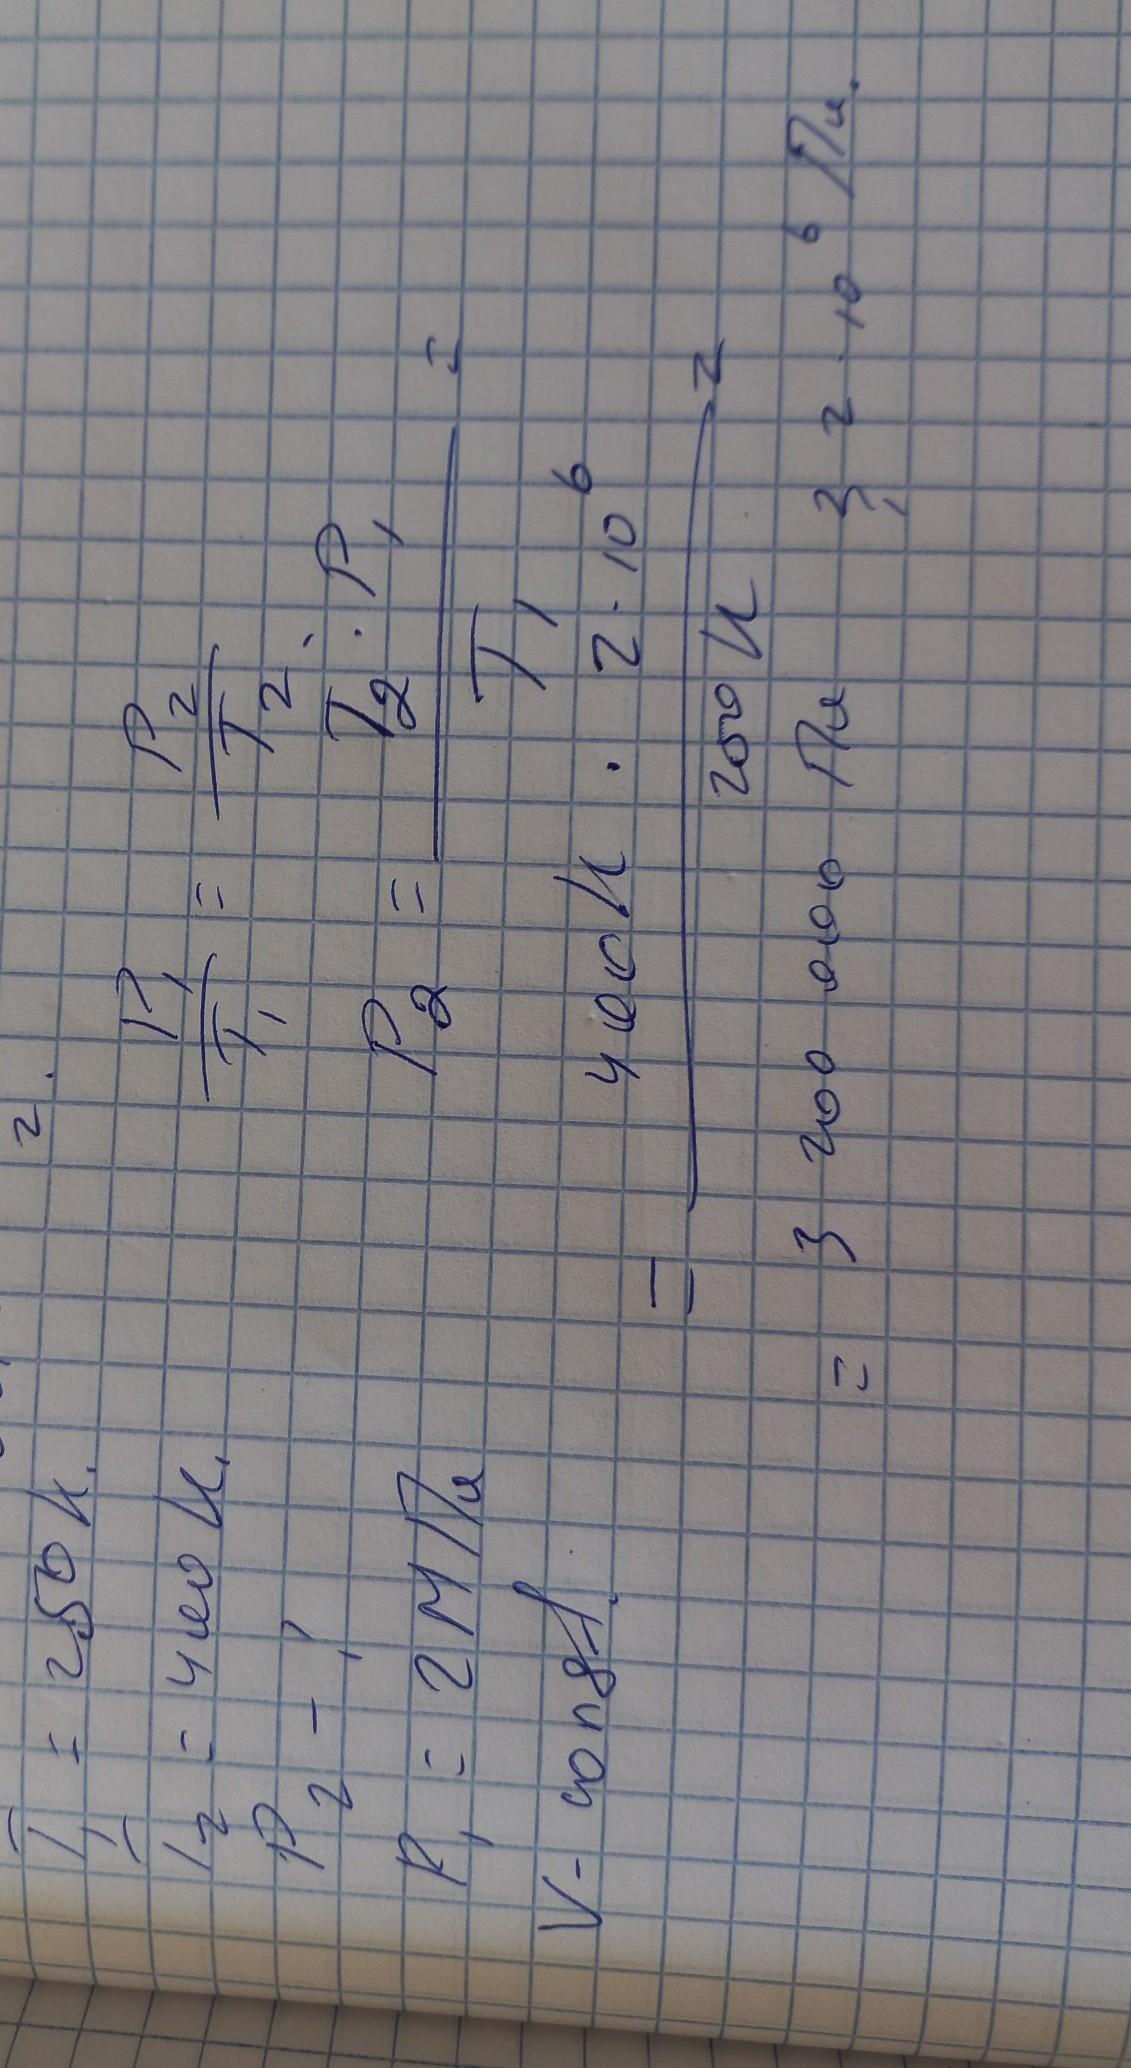 2.
T₁ = 250 К.
T₂ = 400 К.
P₂ - ?
P₁ = 2 МПа
V - const.
P₁/T₁ = P₂/T₂;
P₂ = T₂ · P₁ / T₁ =
= 400К · 2 · 10⁶ / 250 К =
= 3 200 000 Па 3,2 · 10⁶ Па.